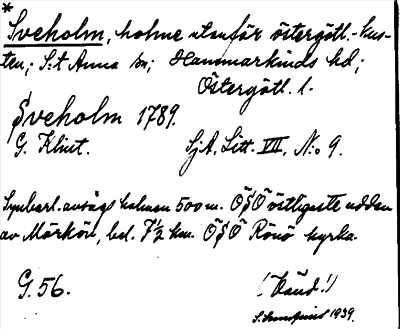 *
Sveholm, holme utanför östergötl.-kus-
ten; S:t Anna sn; Hammarkinds hd;
Östergötl. l.
Sveholm 1789.
G. Klint. SjA. Litt. VII, N:o 9.
Synbarl. avsågs holmen 500 m. ÖSÖ östligaste udden
av Mörkön, bel. 7½ km. ÖSÖ Rönö kyrka.
G. 56. (Vänd!)
1939.